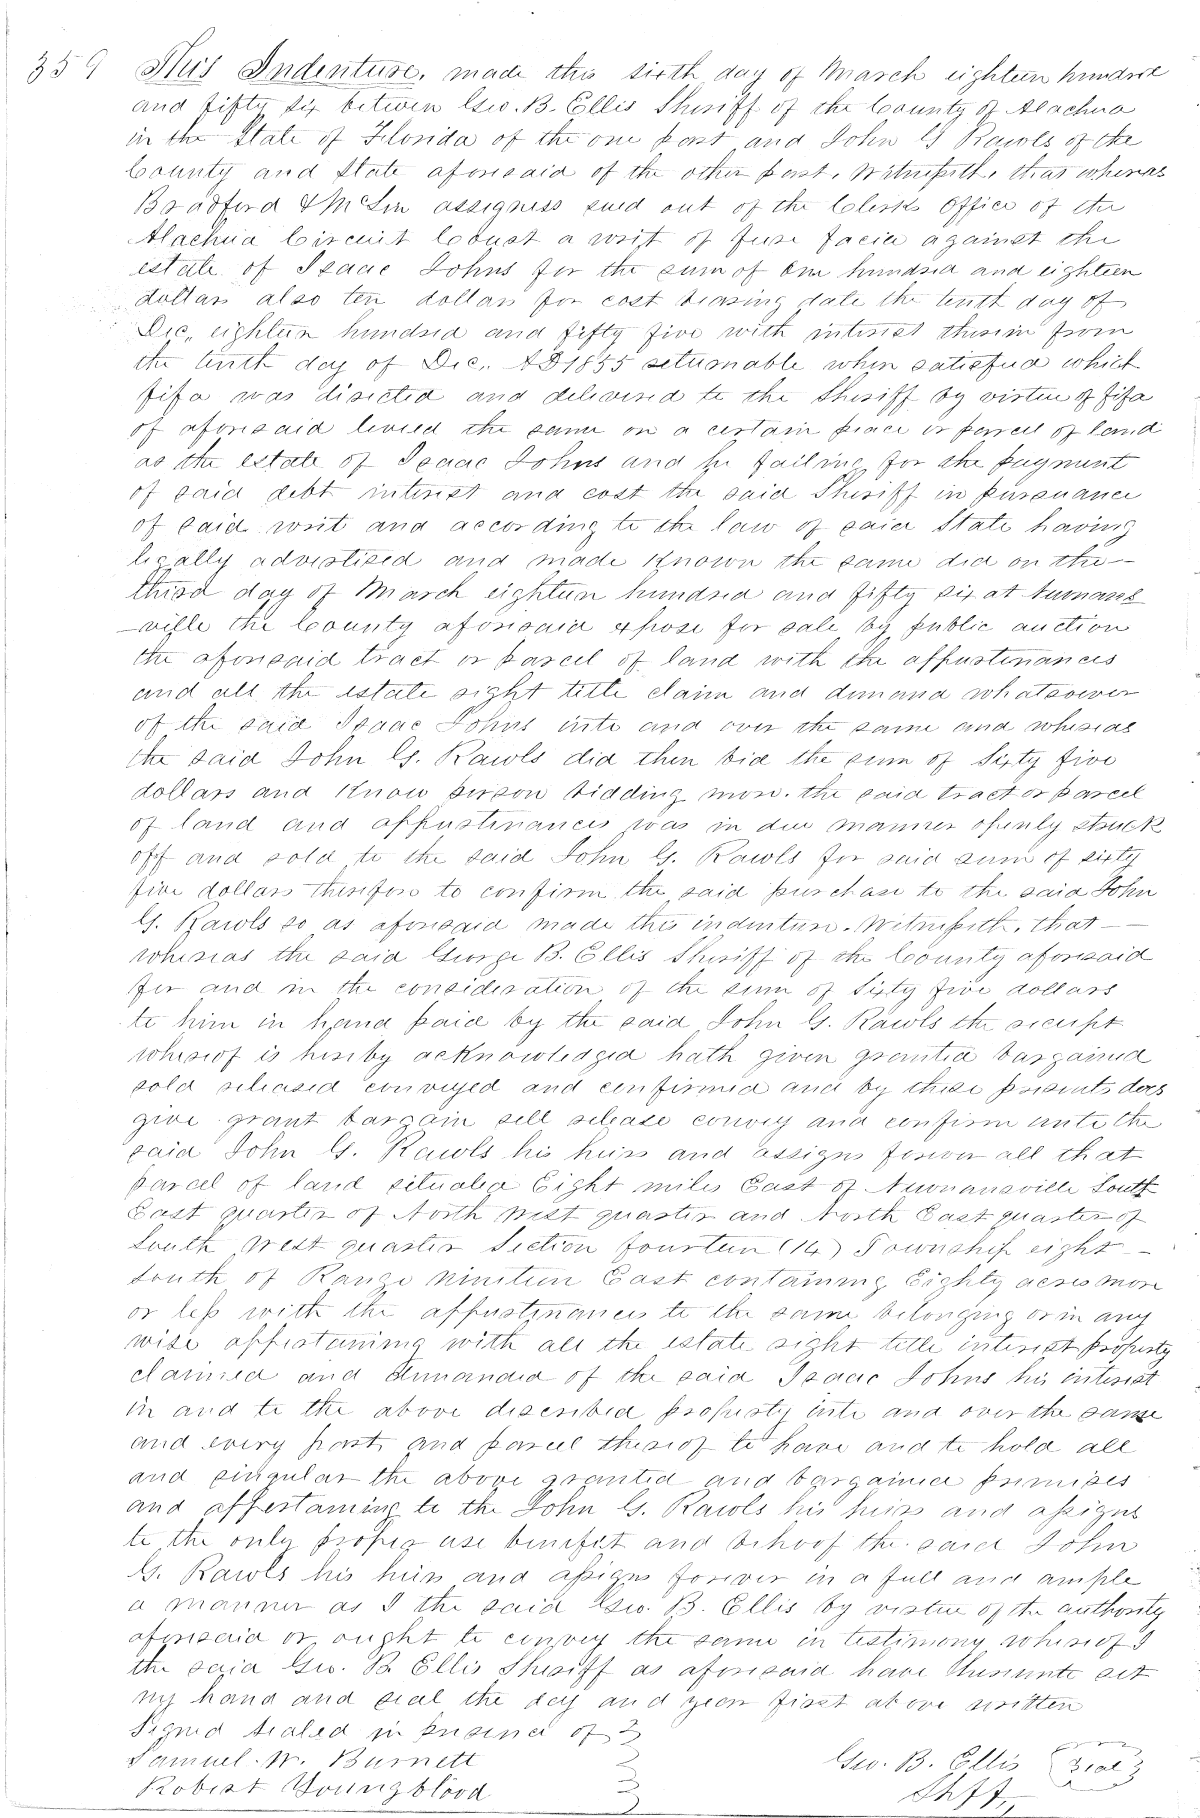 359 This Indenture, made this sixth day of March eighteen hundred
and fifty six between Geo. B. Ellis Sheriff of the County of Alachua
in the State of Florida of the one part and John G Rawls of the
County and State aforesaid of the other part, Witnesseth, that whereas
Bradford & McLin assigness sued out of the Clerks Office of the
Alachua Circuit Court a writ of fiere facia against the
estate of Isaac Johns for the sum of One hundred and eighteen
dollars also ten dollars for cost bearing date the tenth day of
Dec., eighteen hundred and fifty five with interest therein from
the tenth day of Dec., AD 1855 returnable when satisfied which
fifa was directed and delivered to the Sheriff by virtue of fifa
of aforesaid levied the same on a certain peace or parcel of land
as the estate of Isaac Johns and he failing for the payment
of said debt interest and cost the said Sheriff in pursuance
of said writ and according to the law of said State having
legally advertised and made known the same did on the
third day of March eighteen hundred and fifty six at Numans
-ville the County aforesaid expose for sale by public auction
the aforesaid tract or parcel of land with the appurtenances
and all the estate right title claim and demand whatsoever
of the said Isaac Johns into and over the same and whereas
the said John G. Rawls did then bid the sum of Sixty five
dollars and know person bidding more. the said tract or parcel
of land and appurtenances was in due manner openly struck
off and sold to the said John G. Rawls for said sum of sixty
five dollars therefore to confirm the said purchase to the said John
G. Rawls so as aforesaid made this indenture. Witnesseth, that
whereas the said George B. Ellis Sheriff of the County aforesaid
for and in the consideration of the sum of Sixty five dollars
to him in hand paid by the said John G. Rawls the receipt
whereof is hereby acknowledged hath given granted bargained
sold released conveyed and confirmed and by these presents does
give grant bargain sell release convey and confirm unto the
said John G. Rawls his heirs and assigns forever all that
parcel of land situated Eight miles East of Newnansville South
East quarter of North West quarter and North East quarter of
South West quarter Section fourteen (14) Township eight
South of Range nineteen East containing Eighty acres more
or less with the appurtenances to the same belonging or in any
wise appertaining with all the estate right title interest property
claimed and demanded of the said Isaac Johns his interest
in and to the above described property into and over the same
and every part and parcel thereof to have and to hold all
and singular the above granted and bargained premises
and appertaining to the John G. Rawls his heirs and assigns
to the only proper use benefit and behoof the said John
G. Rawls his heirs and assigns forever in a full and ample
a manner as I the said Geo. B. Ellis by virtue of the authority
aforesaid or ought to convey the same in testimony whereof I
the said Geo. B. Ellis Sheriff as aforesaid have hereunto set
my hand and seal the day and year first above written
Signed sealed in presence of
Samuel. W. Burnett Geo. B. Ellis Seal
Robert Youngblood Shff,,